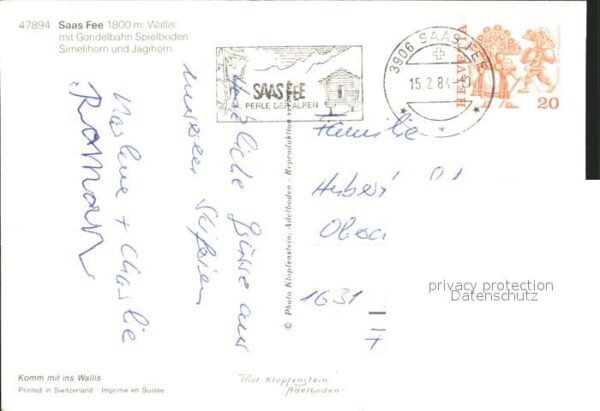 47894 Saas Fee 1800 m. Wallis
mit Gondelbahn Spielboden
Simelihorn und Jägihorn
SAAS FEE
PERLE DER ALPEN
3906 SAAS FEE
15.2.84
HELVETIA
20
Herzliche Grüsse aus
unseren Skiferien
+ Charlie
Roman
Familie
Hubert
1631
© Photo Klopfenstein, Adelboden - Reproduktion verboten
privacy protection
Datenschutz
Komm mit ins Wallis
Printed in Switzerland - Imprimé en Suisse
Phot. Klopfenstein
Adelboden